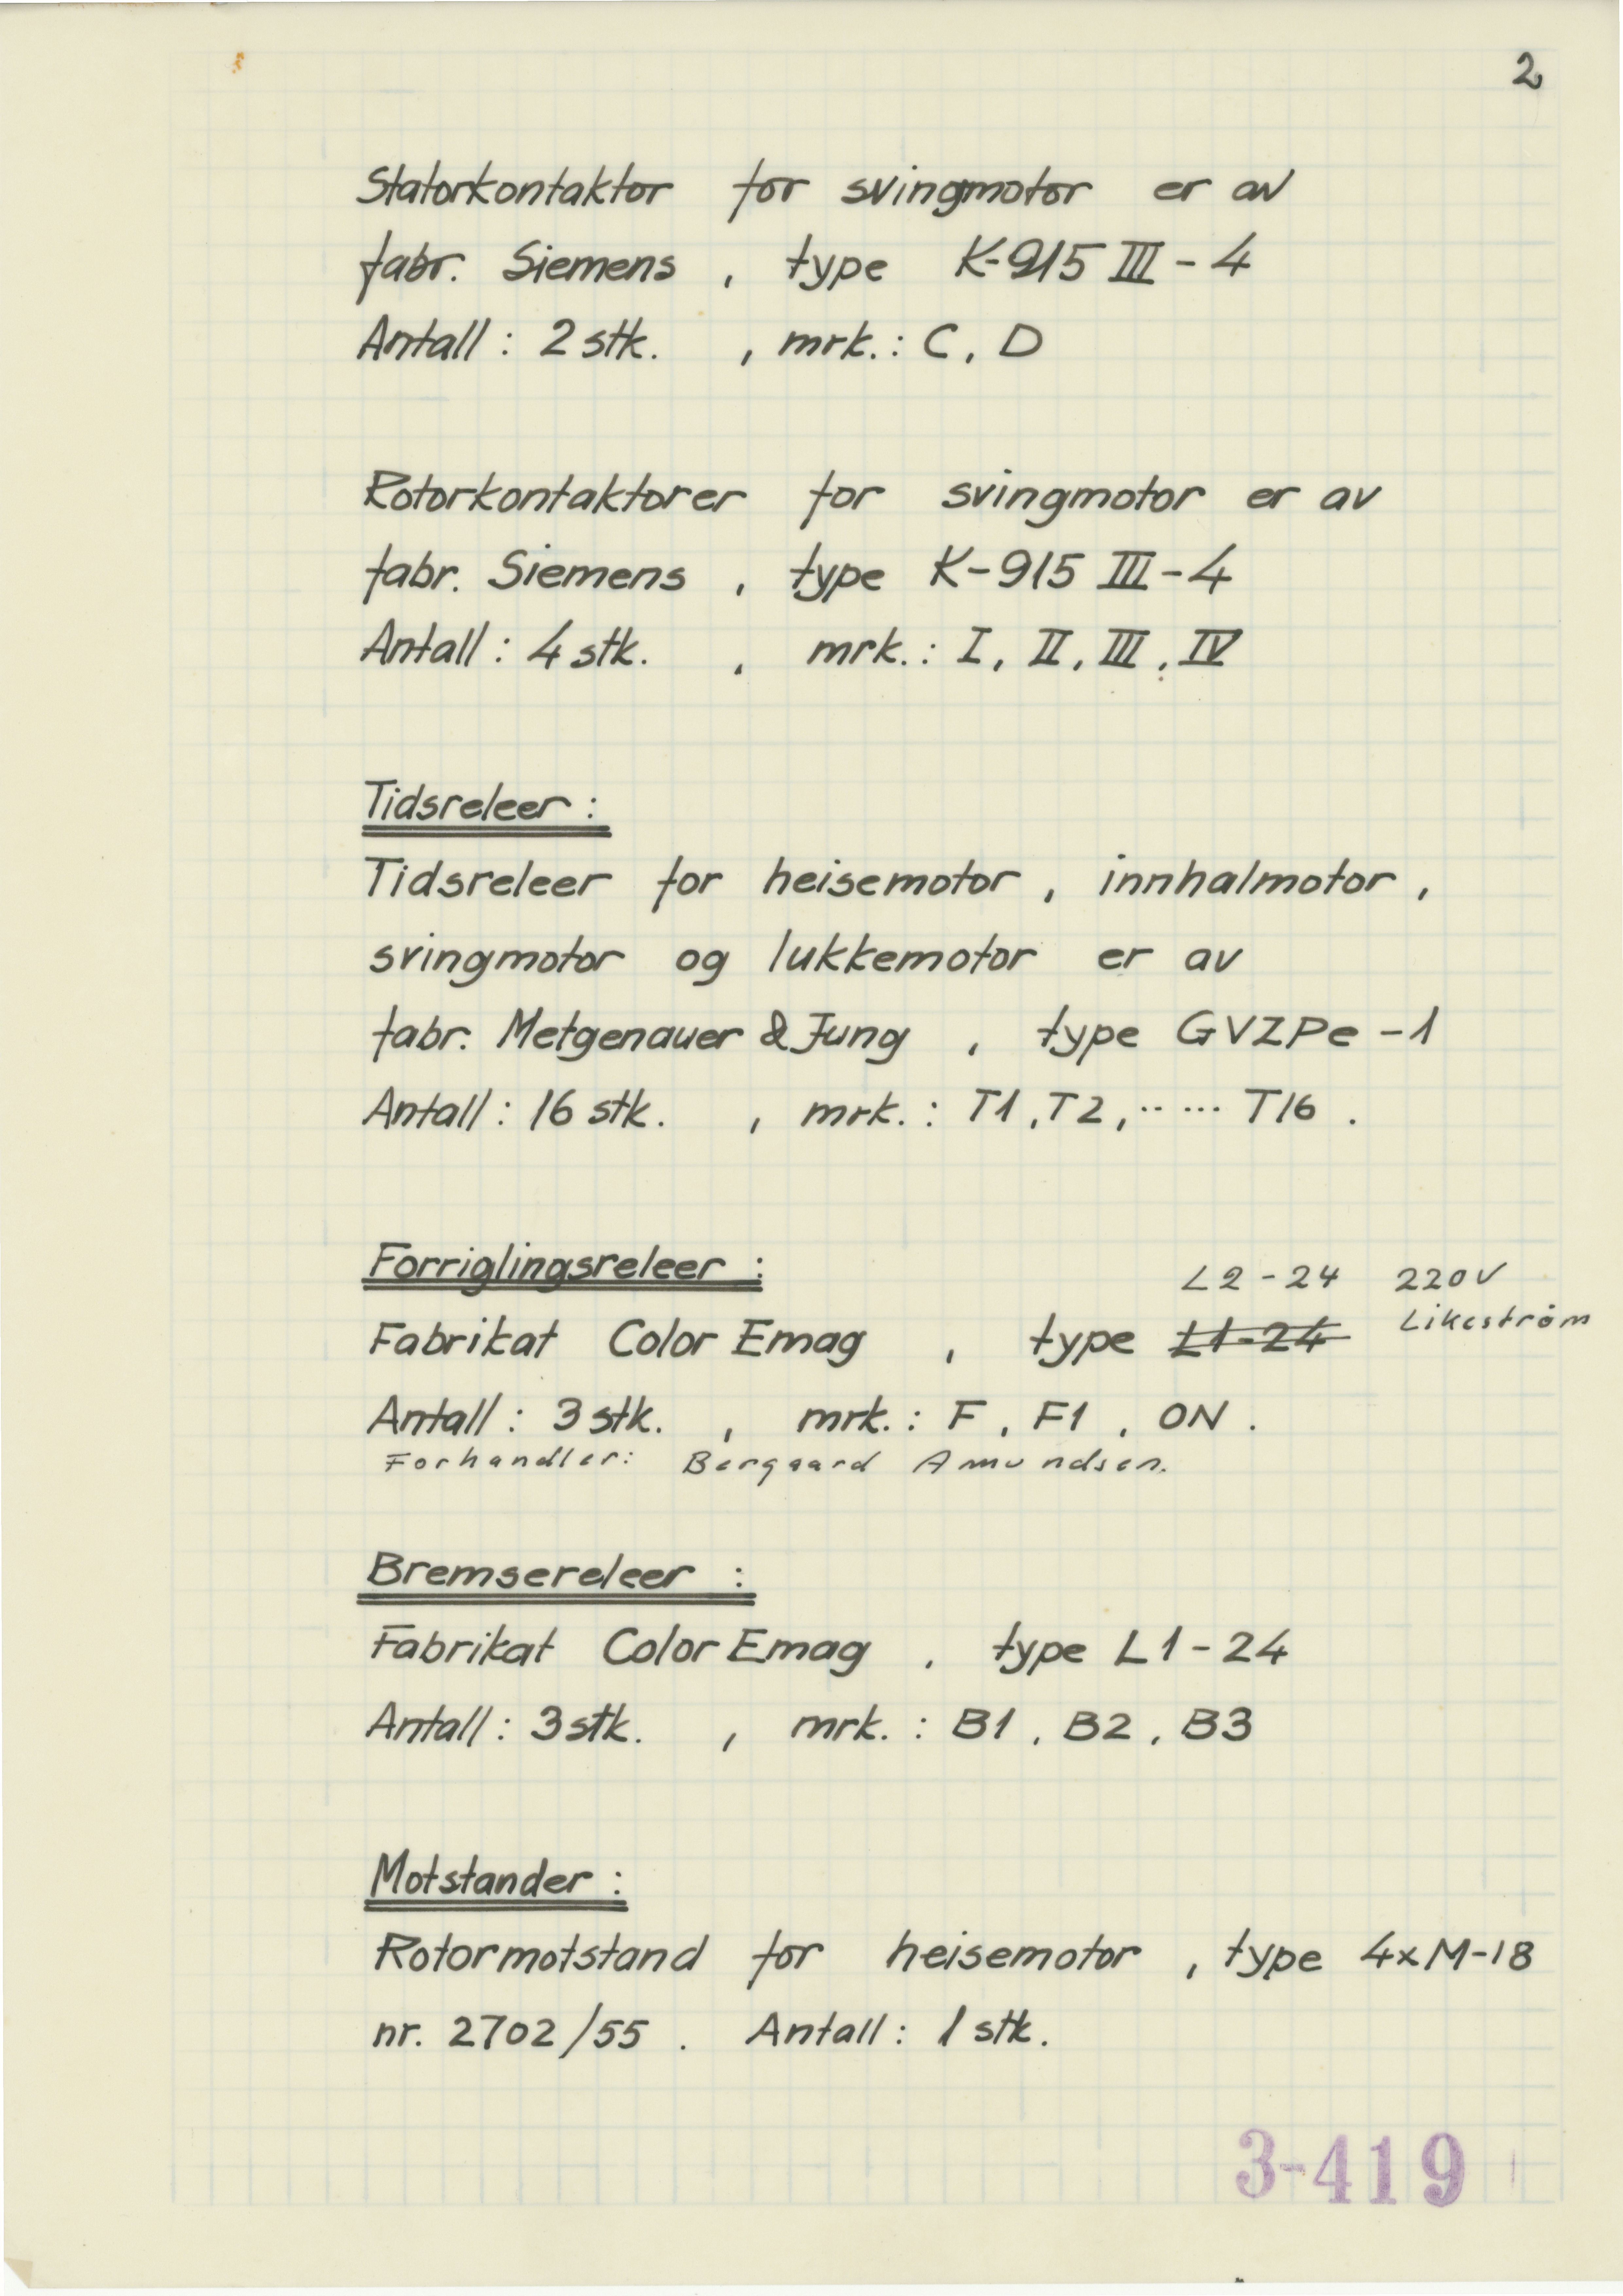 2
Statorkontaktor for svingmotor er av
fabr. Siemens , type K-915 III-4
Antall : 2 stk. , mrk.: C, D
Rotorkontaktorer for svingmotor er av
fabr. Siemens , type K-915 III-4
Antall : 4 stk. , mrk.: I, II, III, IV
Tidsreleer :
Tidsreleer for heisemotor , innhalmotor ,
svingmotor og lukkemotor er av
fabr. Metgenauer & Jung , type GVZPe -1
Antall : 16 stk. , mrk.: T1, T2, ..... T16 .
Forriglingsreleer :
L2-24 220V
Likestrøm
Fabrikat Color Emag , type L1-24
Antall : 3 stk. , mrk.: F, F1, ON .
Forhandler: Borgaard Amundsen.
Bremsereleer :
Fabrikat Color Emag , type L1-24
Antall : 3 stk. , mrk. : B1, B2, B3
Motstander :
Rotormotstand for heisemotor , type 4xM-18
nr. 2702/55 . Antall : 1 stk.
3-419